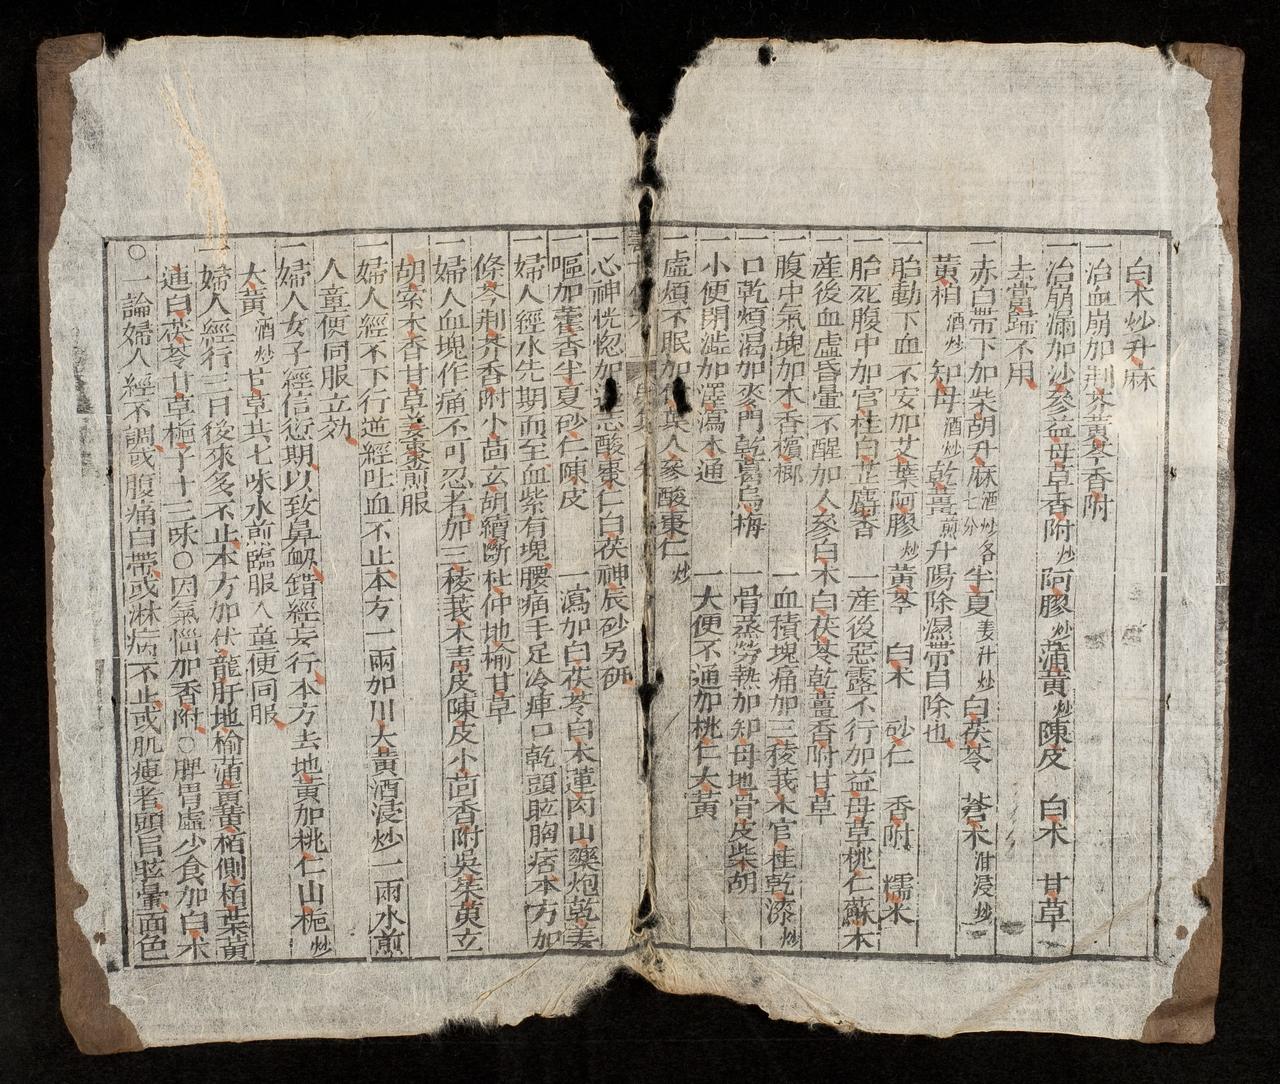 白朮炒升麻
一治血崩加荆芥黄芩香附
一治崩漏加沙參益母草香附炒阿膠炒蒲黄炒陳皮　白朮　甘草
去當歸不用
一赤白帶下加柴胡升麻酒炒各七分半夏姜汁炒白茯苓　蒼朮泔浸炒
黄栢酒炒知母酒炒乾薑煎升陽除濕帶自除也
一胎動下血不安加艾葉阿膠炒黄芩　白朮　砂仁　香附　糯米
一胎死腹中加官桂白芷麝香　一産後惡露不行加益母草桃仁蘇木
産後血虛昏暈不醒加人參白朮白茯苓乾薑香附甘草
一腹中氣塊加木香檳榔　一血積塊痛加三稜莪朮官桂乾漆炒
一口乾煩渴加麥門乾葛烏梅　一骨蒸勞熱加知母地骨皮柴胡
一小便閉澁加澤瀉木通　一大便不通加桃仁大黄
一虛煩不眠加竹葉人參酸棗仁炒
一心神恍惚加遠志酸棗仁白茯神辰砂另研
一嘔加藿香半夏砂仁陳皮　一瀉加白茯苓白朮蓮肉山藥炮乾姜
一婦人經水先期而至血紫有塊腰痛手足冷痺口乾頭眩胸痞本方加
條芩荆芥香附小茴玄胡續斷杜仲地榆甘草
一婦人血塊作痛不可忍者加三稜莪朮青皮陳皮小茴香附吳茱萸立
胡索木香甘草姜棗煎服
一婦人經不下行逆經吐血不止本方一兩加川大黄酒浸炒二兩水煎
入童便同服立効
一婦人女子經信愆期以致鼻衂錯經妄行本方去地黄加桃仁山梔炒
大黄酒炒甘草共七味水煎臨服入童便同服
一婦人經行三日後來多不止本方加伏龍肝地榆蒲黄黄栢側栢葉黄
連白茯苓甘草梔子十三味〇因氣惱加香附〇脾胃虛少食加白朮
〇一論婦人經不調或腹痛白帶或淋病不止或肌瘦者頭目眩暈面色